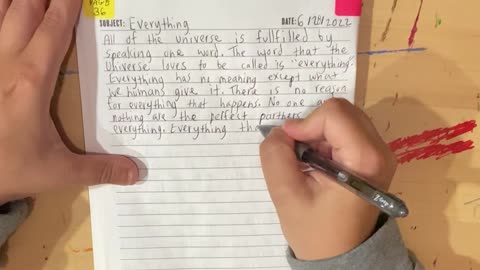 PAGE
36
SUBJECT: Everything DATE: 6 MAY 2022
All of the universe is fullfilled by
speaking one word. The word that the
Universe loves to be called is "everything."
Everything has no meaning except what
we humans give it. There is no reason
for everything that happens. No one a
nothing are the perfect partners
everything. Everything tha